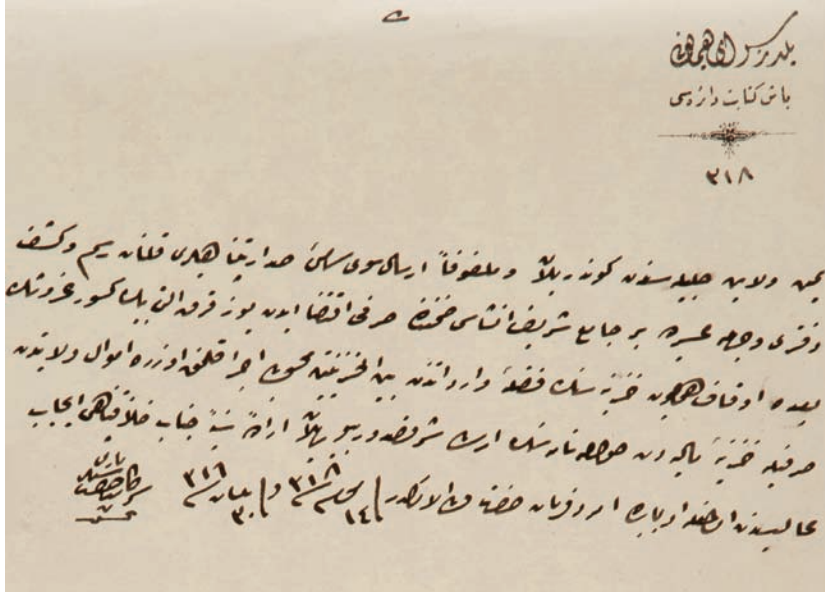 یلدیز سرای همایونی
باش کتابت دائره‌سی
٣١٨
یمن ولایت جلیله‌سندن کوندریلان و ملفوفاً ارسال سوی سامئ صدارتپناهیلری قلنان رسم و کشف
دفتری وجهله عسیرده بر جامع شریف انشاسی ضمننده صرفی اقتضا ایدن یوز قرق التی بیك کسور غروشك
بعده اوقاف همایون خزینه‌سنك فضلهٔ وارداتندن بین الخزینتین محسوبی اجرا قلنمق اوزره اموال ولایتدن
صرفیله خزینهٔ مالیه‌دن حواله‌نامه‌سنك ارسالی شرفصدور بیوریلان ارادهٔ سنیهٔ جناب خلافتپناهی ایجاب
عالیسندن اولمغله اولبابده امر و فرمان حضرت ولی الامرکدر
١٤ محرم سنه ٣١٨ و ٣٠ نیسان سنه ٣١٦
سرکاتب حضرت شهریاری
تحسین